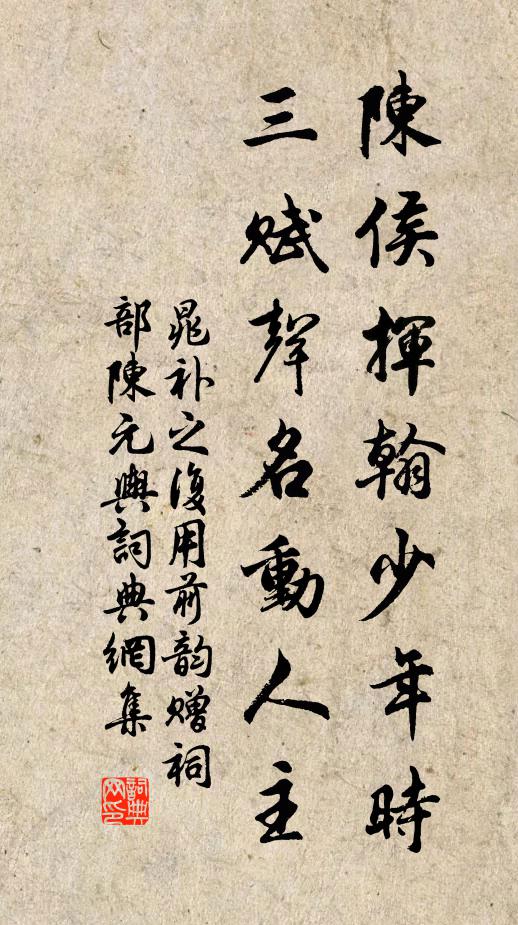 陳侯揮翰少年時
三賦聲名動人主
晁补之復用前韵贈祠
部陳元輿詞典網集
詞典网印